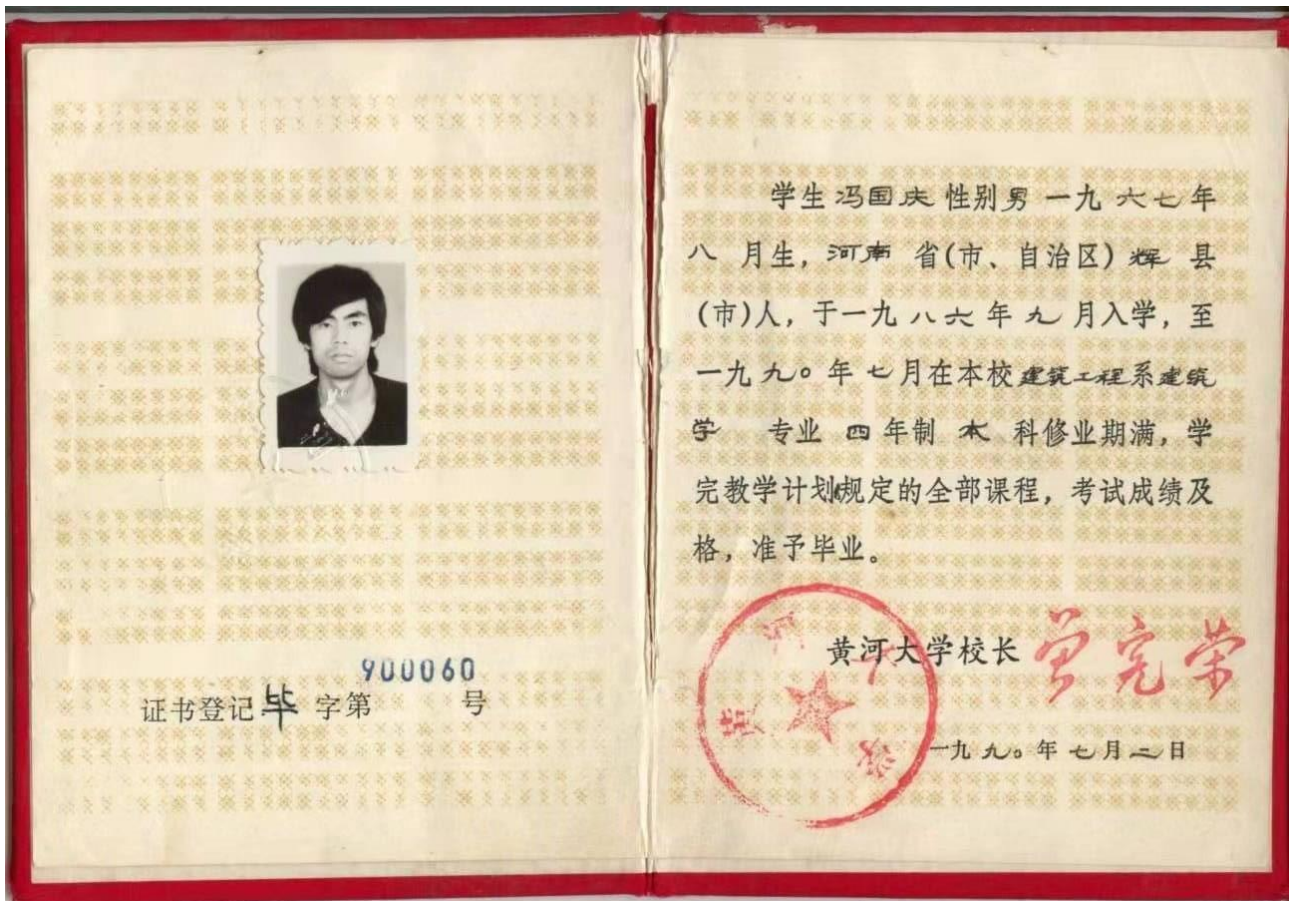 900060
证书登记毕字第 号
学生冯国庆性别男一九六七年
八 月生，河南 省(市、自治区)辉 县
(市)人，于一九八六年九月入学，至
一九九〇年七月在本校建筑工程系建筑
学 专业 四年制 本 科修业期满，学
完教学计划规定的全部课程，考试成绩及
格，准予毕业。
黄河大学校长
黄河大学
一九九〇年七月二日